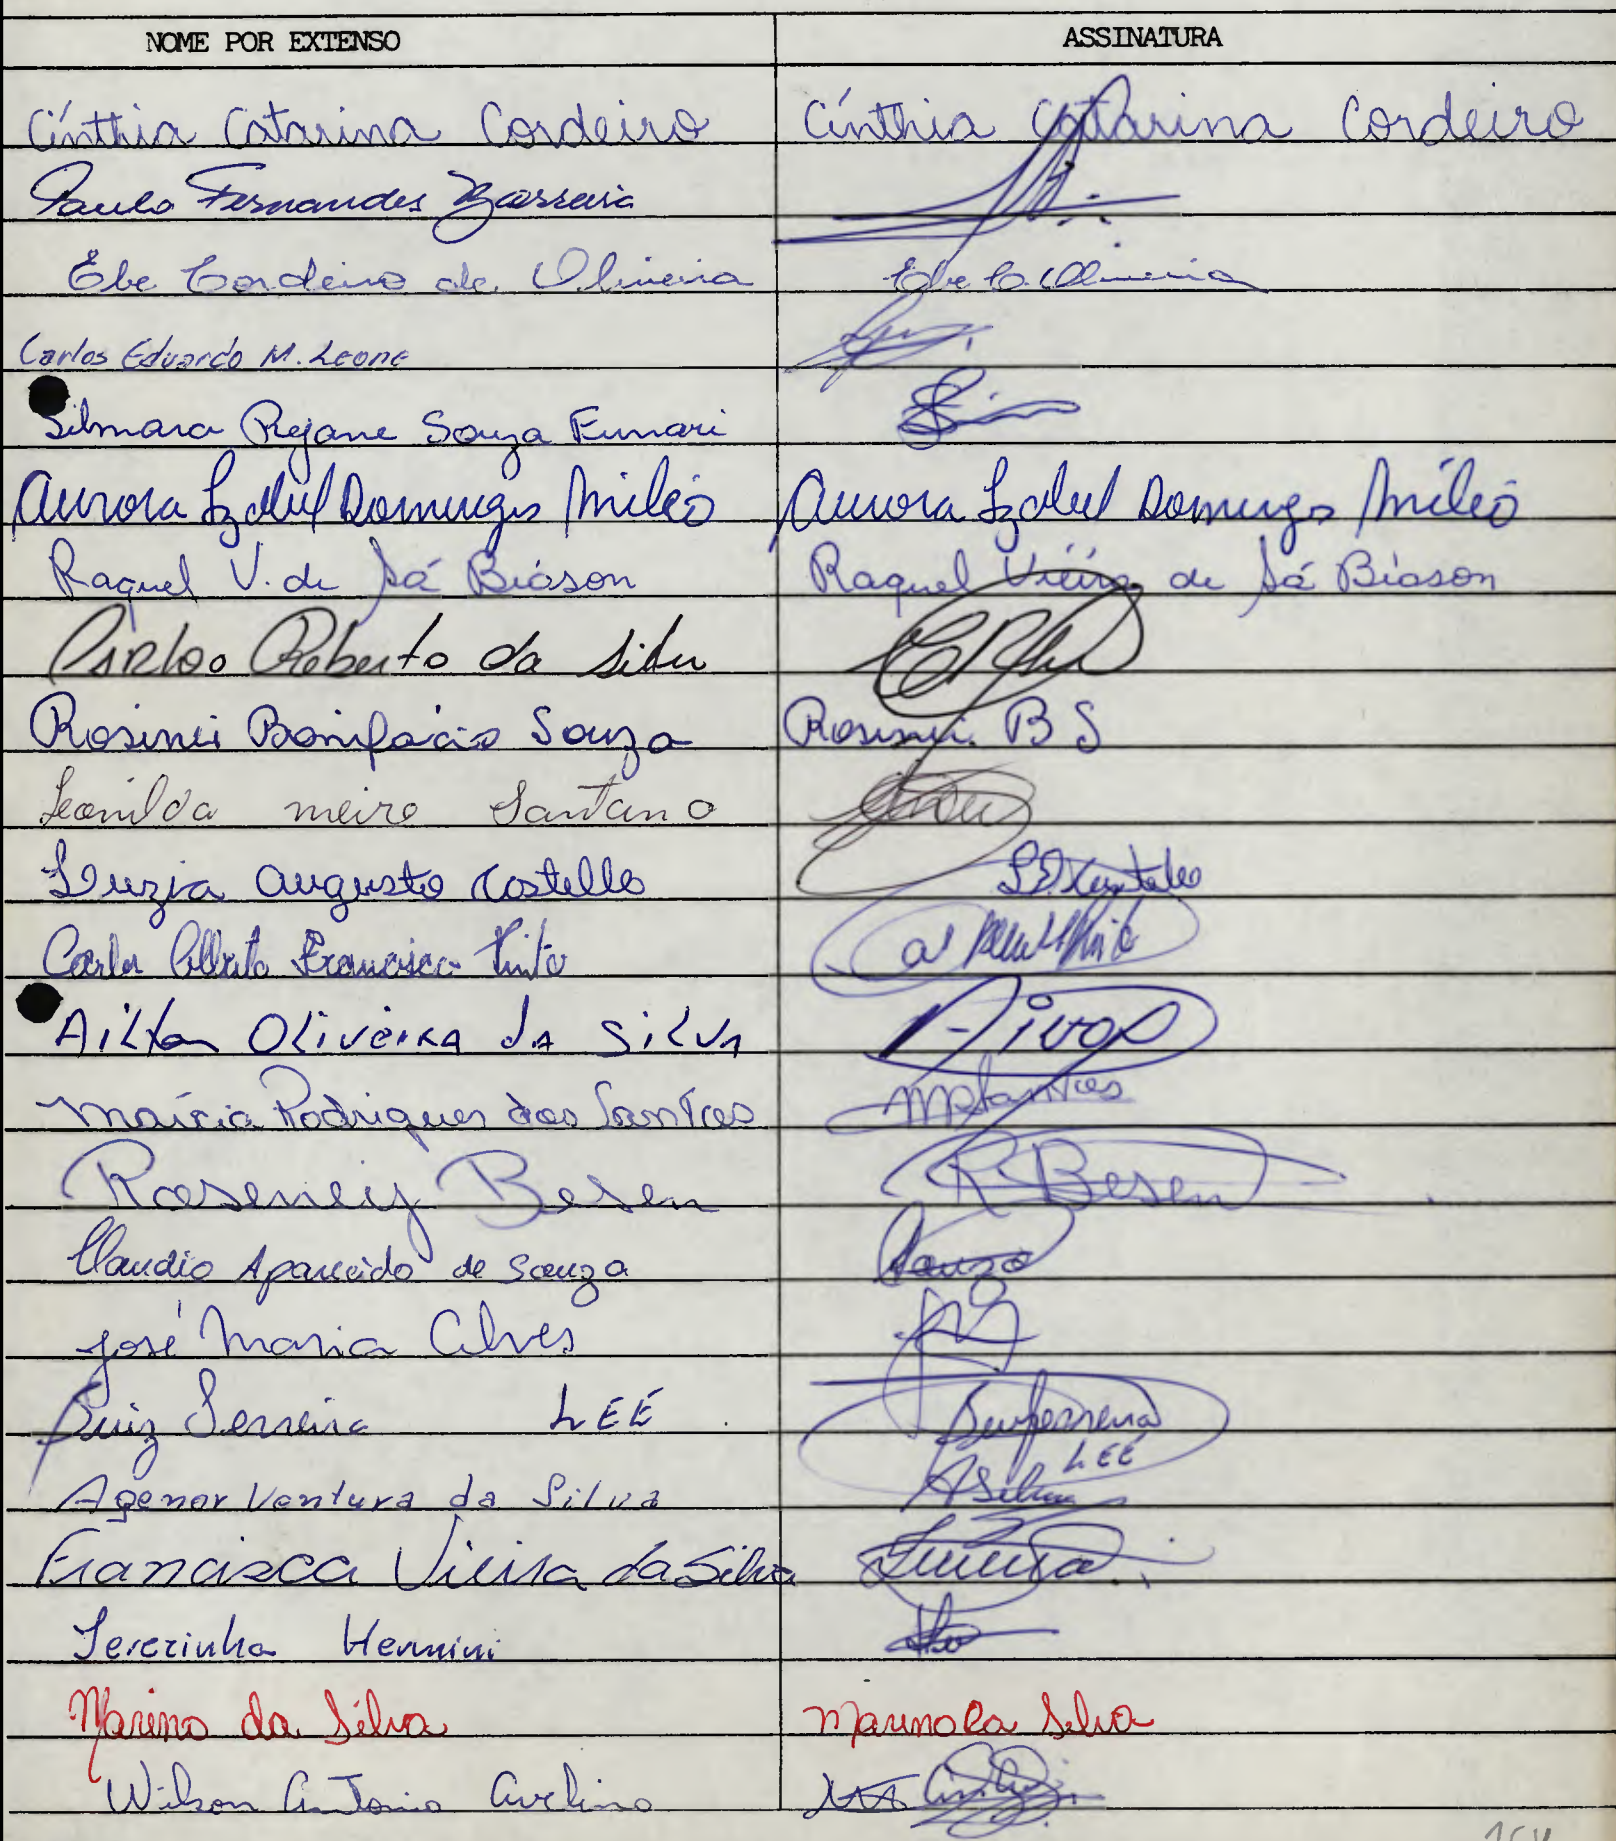 NOME POR EXTENSO ASSINATURA
Cínthia Catarina Cordeiro Cínthia Catarina Cordeiro
Paulo Fernandes Barreira
Ebe Cordeiro de Oliveira Ebe C. Oliveira
Carlos Eduardo M. Leone
Silmara Rejane Souza Funari
Aurora Izabel Domingos Miléo Aurora Izabel Domingos Miléo
Raquel V. de Sá Biáson Raquel Vieira de Sá Biason
Carlos Roberto da Silva
Rosinei Bonifácio Souza Rosinei B S
Leonilda meire Santana
Luzia Augusto Costello
Carlos Alberto Francisco Pinto
Ailton Oliveira da Silva
Márcia Rodrigues dos Santos MRSantos
Roseneiy Besen R Besen
Claudio Aparecido de Souza Souza
José Maria Alves
Luiz Ferreira LEÉ Luiz Ferreira
LEÉ
Agenor Ventura da Silva ASilva
Francisca Vieira da Silva
Terezinha Hermini
Marino da Silva Marino da Silva
Wilson Antonio Avelino